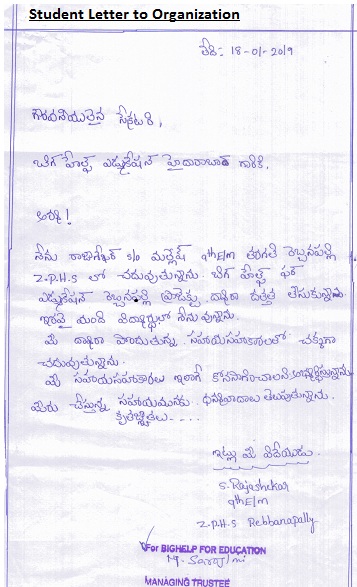 Student Letter to Organization
తేది: 18-01-2019
గౌరవనీయులైన సేక్రటరి,
బిగ్ హేల్ప్ ఎడ్యుకేషన్ హైదరాబాద్ గారికి.
అయ్యా!
నేను రాజశేఖర్ s/o మల్లేష్ 9th E/m తరగతి రెబ్బనపల్లి
Z.P.H.S లో చదువుతున్నాను. బిగ్ హేల్ప్ ఫర్
ఎడ్యుకేషన్ రెబ్బనపల్లి ప్రాజెక్టు ద్వారా దత్తత తీసుకున్న
ఇరవై మంది విద్యార్థులలో నేను వున్నాను.
మీ ద్వారా పొందుతున్న సహాయసహకారాలతో చక్కగా
చదువుతున్నాను.
మీ సహాయసహకారాలు ఇలాగే కొనసాగించాలని అభ్యర్థిస్తున్నాను
మీరు చేస్తున్న సహాయమునకు ధన్యవాదాలు తెలుపుతున్నాను.
కృతజ్ఞతలు- - - -
ఇట్లు మీ విదేయుడు.
S. Rajashekar
9th E/m
Z.P.H.S Rebbanapally
For BIGHELP FOR EDUCATION
MANAGING TRUSTEE